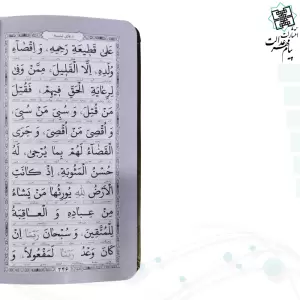 عَلىٰ قَطيعَةِ رَحِمِهِ، وَ اِقْصآءِ
وُلْدِهِ، اِلَّا الْقَليلَ مِمَّنْ وَفىٰ
لِرِعايَةِ الْحَقِّ فيهِمْ، فَقُتِلَ
مَنْ قُتِلَ، وَ سُبِيَ مَنْ سُبِيَ
وَ اُقْصِيَ مَنْ اُقْصِيَ، وَ جَرَى
الْقَضآءُ لَهُمْ بِما يُرْجىٰ لَهُ
حُسْنُ الْمَثُوبَةِ، اِذْ كانَتِ
الْاَرْضُ لِلّٰهِ يُورِثُها مَنْ يَشآءُ
مِنْ عِبادِهِ وَ الْعاقِبَةُ
لِلْمُتَّقينَ، وَ سُبْحانَ رَبِّنا اِنْ
كانَ وَعْدُ رَبِّنا لَمَفْعُولاً، وَ